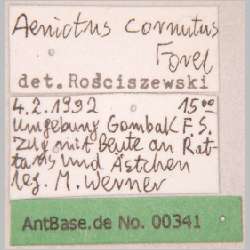 Aenictus cornutus
Forel
det. Rościszewski
4.2.1992 15⁰⁰
Umgebung Gombak F.S.
Zug mit Beute an Rat-
tans und Ästchen
leg. M. Werner
AntBase.de No. 00341